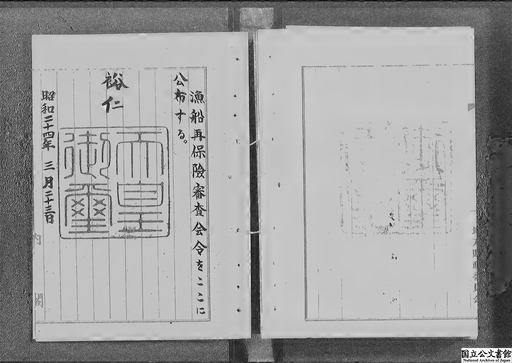 漁船再保険審査会令をここに
公布する。
裕仁
天皇
御璽
昭和三十四年 三月二十三日
内閣
国立公文書館
National Archives of Japan